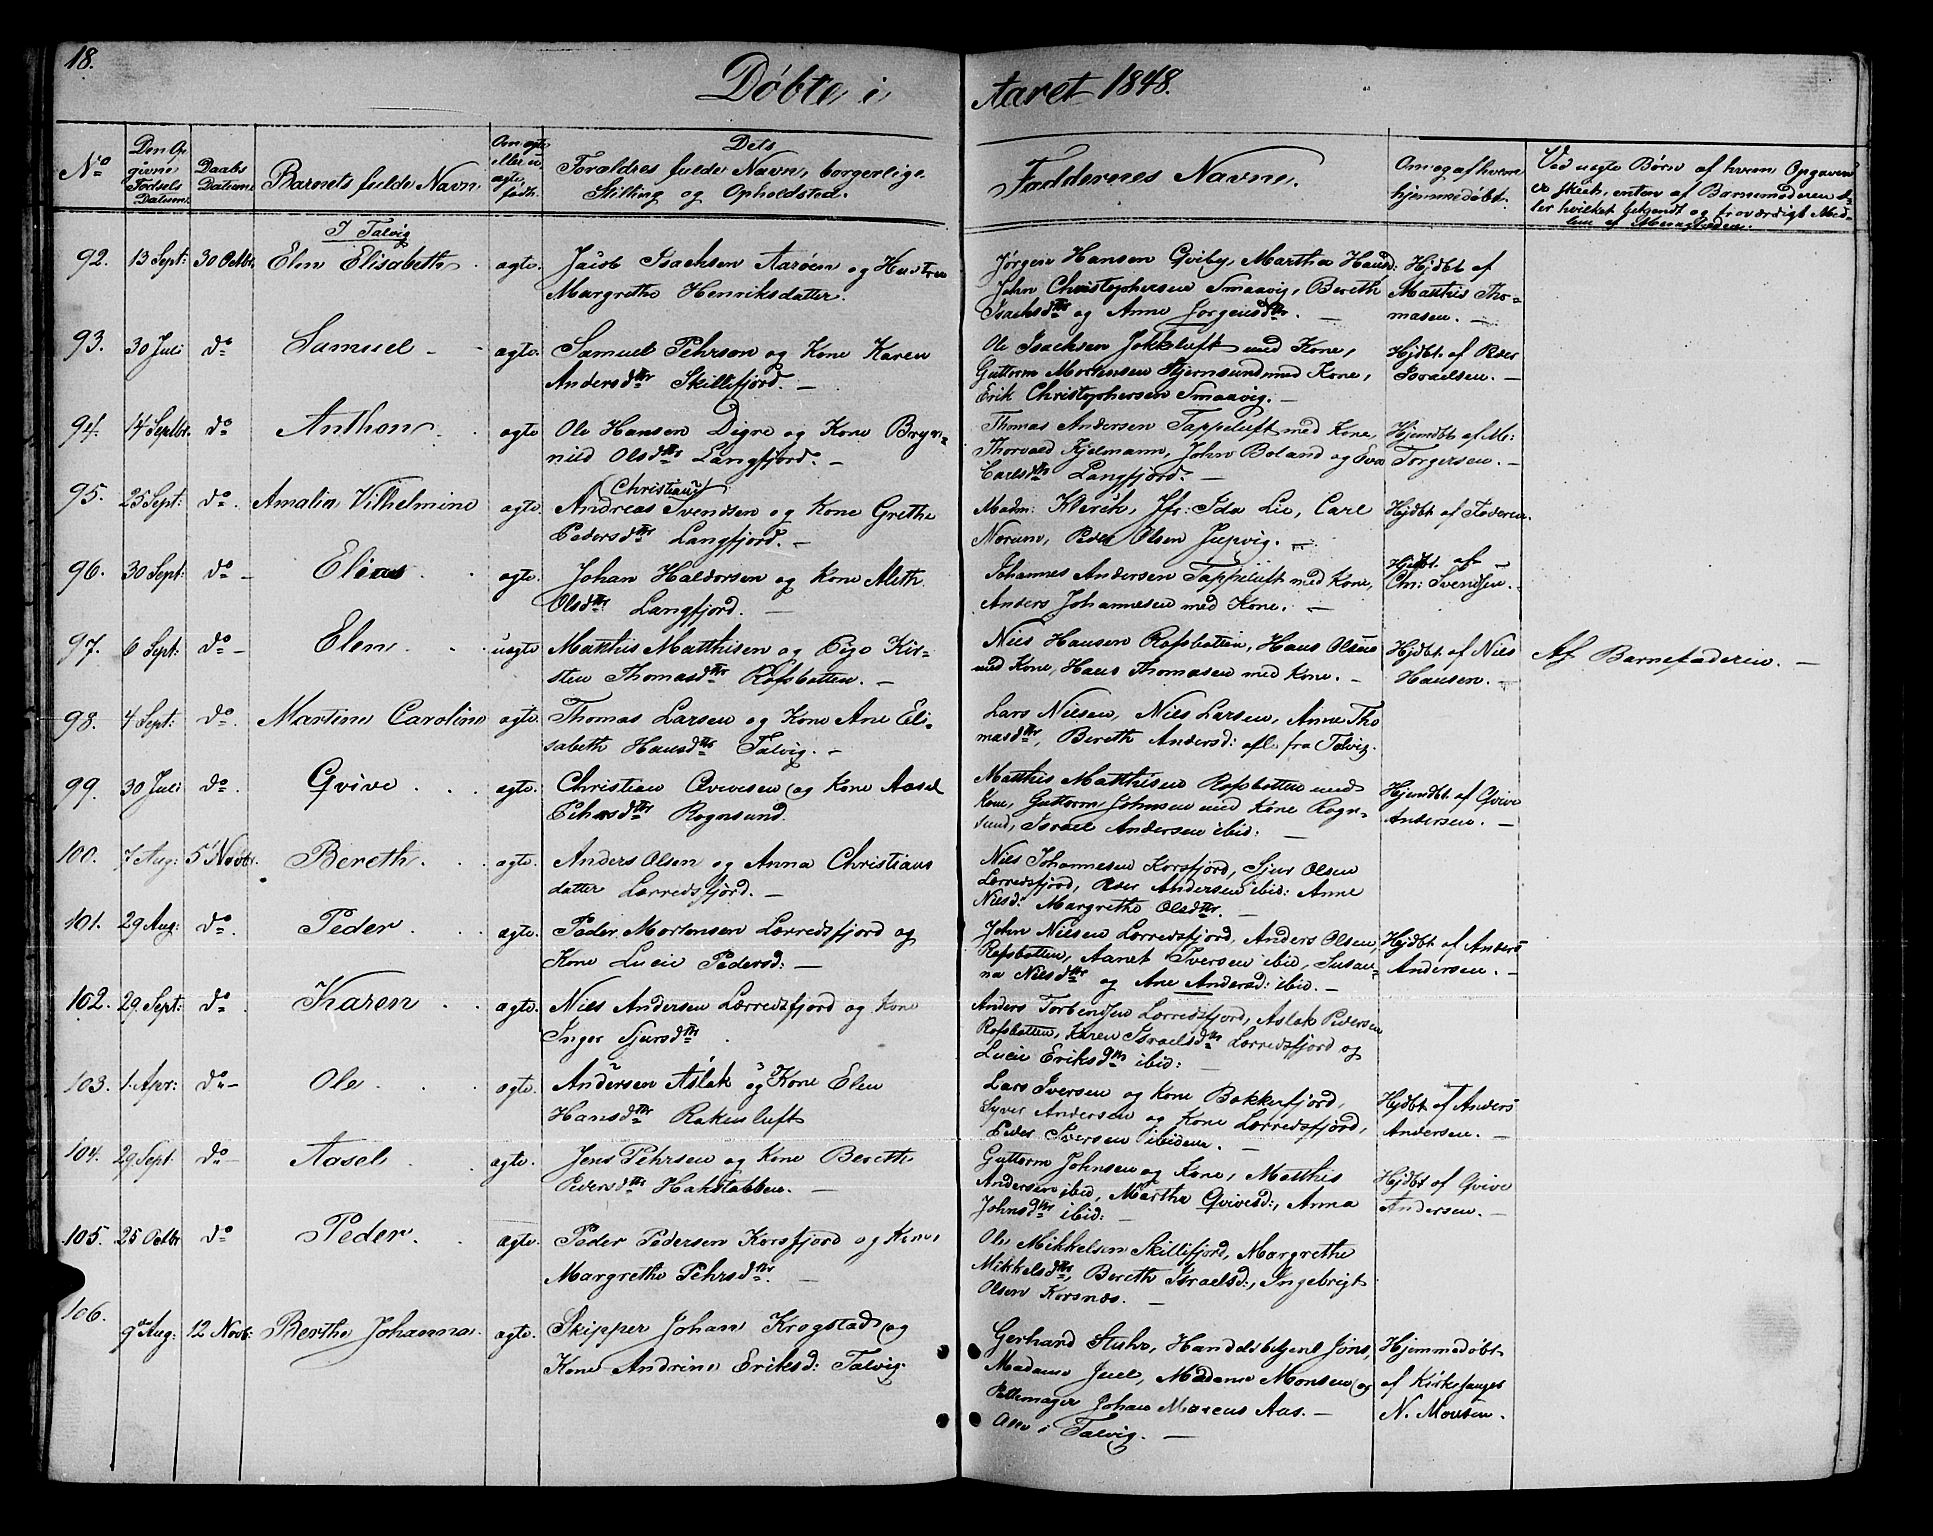 18.
Døbte i Aaret 1848.
No
Den Op
givne
Fødsels
Datum.
Daabs
Datum.
Barnets fulde Navn.
Om ægte
eller u
ægte
født.
Dets
Forældres fulde Navn, borgerlige
Stilling og Opholdsted.
Faddernes Navne.
Om og af hvem
hjemmedøbt.
Ved uægte Børn af hvem Opgaven
er skeet, enten af Barnemoderen el-
ler hvilket bekjendt og troværdigt Med-
lem af Menigheden.
I Talvig
92. 13 Sept: 30 Octbr. Elen Elisabeth ægte. Jacob Isachsen Aarøen og Hustru
Margrethe Henriksdatter.
Jørgen Hansen Qviby, Martha Hansd:
John Christophersen Smaavig, Bereth
Isachsdtr og Anne Jørgensdtr. —
Hjdbt af
Matthis Tho-
masen. —
93. 30 Juli do Samuel ægte. Samuel Pehrson og Kone Karen
Andersdtr Skillefjord. —
Ole Isachsen Jokkeluft med Kone,
Guttorm Mortensen Stjernsund med Kone,
Erik Christophersen Smaavig. —
Hjdbt. af Peer
Israelsen. —
94. 14 Septbr. do Anthon ægte Ole Hansen Digre og Kone Bryn-
nild Olsdtr Langfjord. —
Thomas Andersen Tappeluft med Kone,
Thorvald Kjelmann, John Boland og Eva
Carlsdtr Langfjord. —
Hjemdbt af M:
Torgersen. —
95. 25 Sept: do. Amalia Vilhelmine ægte. (Christian)
Andreas Svendsen og Kone Grethe
Pedersdtr Langfjord. —
Madm: Klerck, Jfr: Ida Lie, Carl
Norum, Peder Olsen Julpvig. —
Hjdbt af Faderen.
96. 30 Sept: do — Elias ægte. Johan Haldorsen og Kone Aleth
Olsdtr Langfjord. —
Johannes Andersen Tappeluft med Kone,
Anders Johannesen med Kone. —
Hjdbt. af
Chr: Svendsen. —
97. 6 Sept: do — Elen uægte Matthis Matthisen og Pige Kir-
sten Thomasdtr Rafsbotten. —
Niels Hansen Rafsbotten, Hans Olsen
med Kone, Hans Thomasen med Kone. —
Hjdbt. af Niels
Hansen. —
Af Barnefaderen. —
98. 4 Sept: do. Martine Caroline ægte. Thomas Larsen og Kone Ane Eli-
sabeth Hansdtr Talvig. —
Lars Nielsen, Niels Larsen, Anne Tho
masdtr, Bereth Andersd: alle fra Talvig.
99. 30 Juli do. Qvive ægte. Christian Qvivesen og Kone Aasel
Pehrsdtr Rognsund.
Matthis Matthisen Rafsbotten med
Kone, Guttorm Johnsen med Kone Rogn-
sund, Israel Andersen ibid: —
Hjemdbt af Qvive
Andersen. —
100. 7 Aug: 5 Novbr. Bereth ægte. Anders Olsen og Anna Christians
datter Lerredsfjord. —
Niels Johannesen Korsfjord, Sjur Olsen
Lerredsfjord, Peder Andersen ibid: Anne
Nielsd: Margrethe Olsdtr. —
101. 29 Aug: do. Peder ægte. Peder Mortensen Lerredsfjord og
Kone Lucie Pedersd: —
John Nielsen Lerredsfjord, Anders Olsen,
Rafsbotten, Aanet Iversen ibid, Susan-
na Nielsdtr og Ane Andersd: ibid. —
Hjdbt af Anders
Andersen. —
102. 29 Sept: do. Karen ægte. Niels Andersen Lerredsfjord og Kone
Inger Sjursdtr
Anders Torbensen Lerredsfjord, Aslak Pedersen
Rafsbotten, Karen Israelsdtr Lerredsfjord og
Lucie Eriksdtr ibid: —
103. 1. Apr: do — Ole ægte. Andersen Aslak og Kone Elen
Hansdtr Rakenluft
Lars Iversen og Kone Bekkefjord,
Syver Andersen og Kone Lerredsfjord,
Peder Iversen ibidem. —
Hjdbt af Anders
Andersen. —
104. 29 Sept: do — Aasel ægte. Jens Pehrsen og Kone Bereth
Pedersdtr Hakstabben. —
Guttorm Johnsen og Kone, Matthis
Andersen ibid, Marthe Qvivesd:, Anna
Johnsdtr ibid: —
Hjdbt af Qvive
Andersen. —
105. 25 Octbr do Peder. ægte. Peder Pedersen Korsfjord og Kone
Margrethe Pehrsdtr. —
Ole Mikkelsen Skillefjord, Margrethe
Mikkelsdtr, Bereth Israelsd:, Ingebrigt
Olsen Korsnæs. —
106. 9de Aug: 12 Novbr: Berthe Johanna. ægte. Skipper Johan Krogstad og
Kone Andrine Eriksd: Talvig.
Gerhard Handelsbetjent Jöns,
Madame Juel, Madame Monsen og
Johan Marcus Aas. —
Alle i Talvig. —
Hjemmedøbt
af Kirkesanger
N. Monsen.